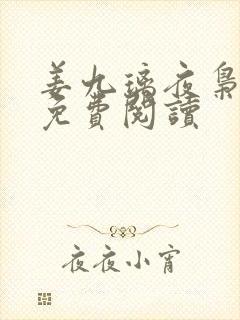 姜九璃夜梟
免費閱讀
夜夜小宵